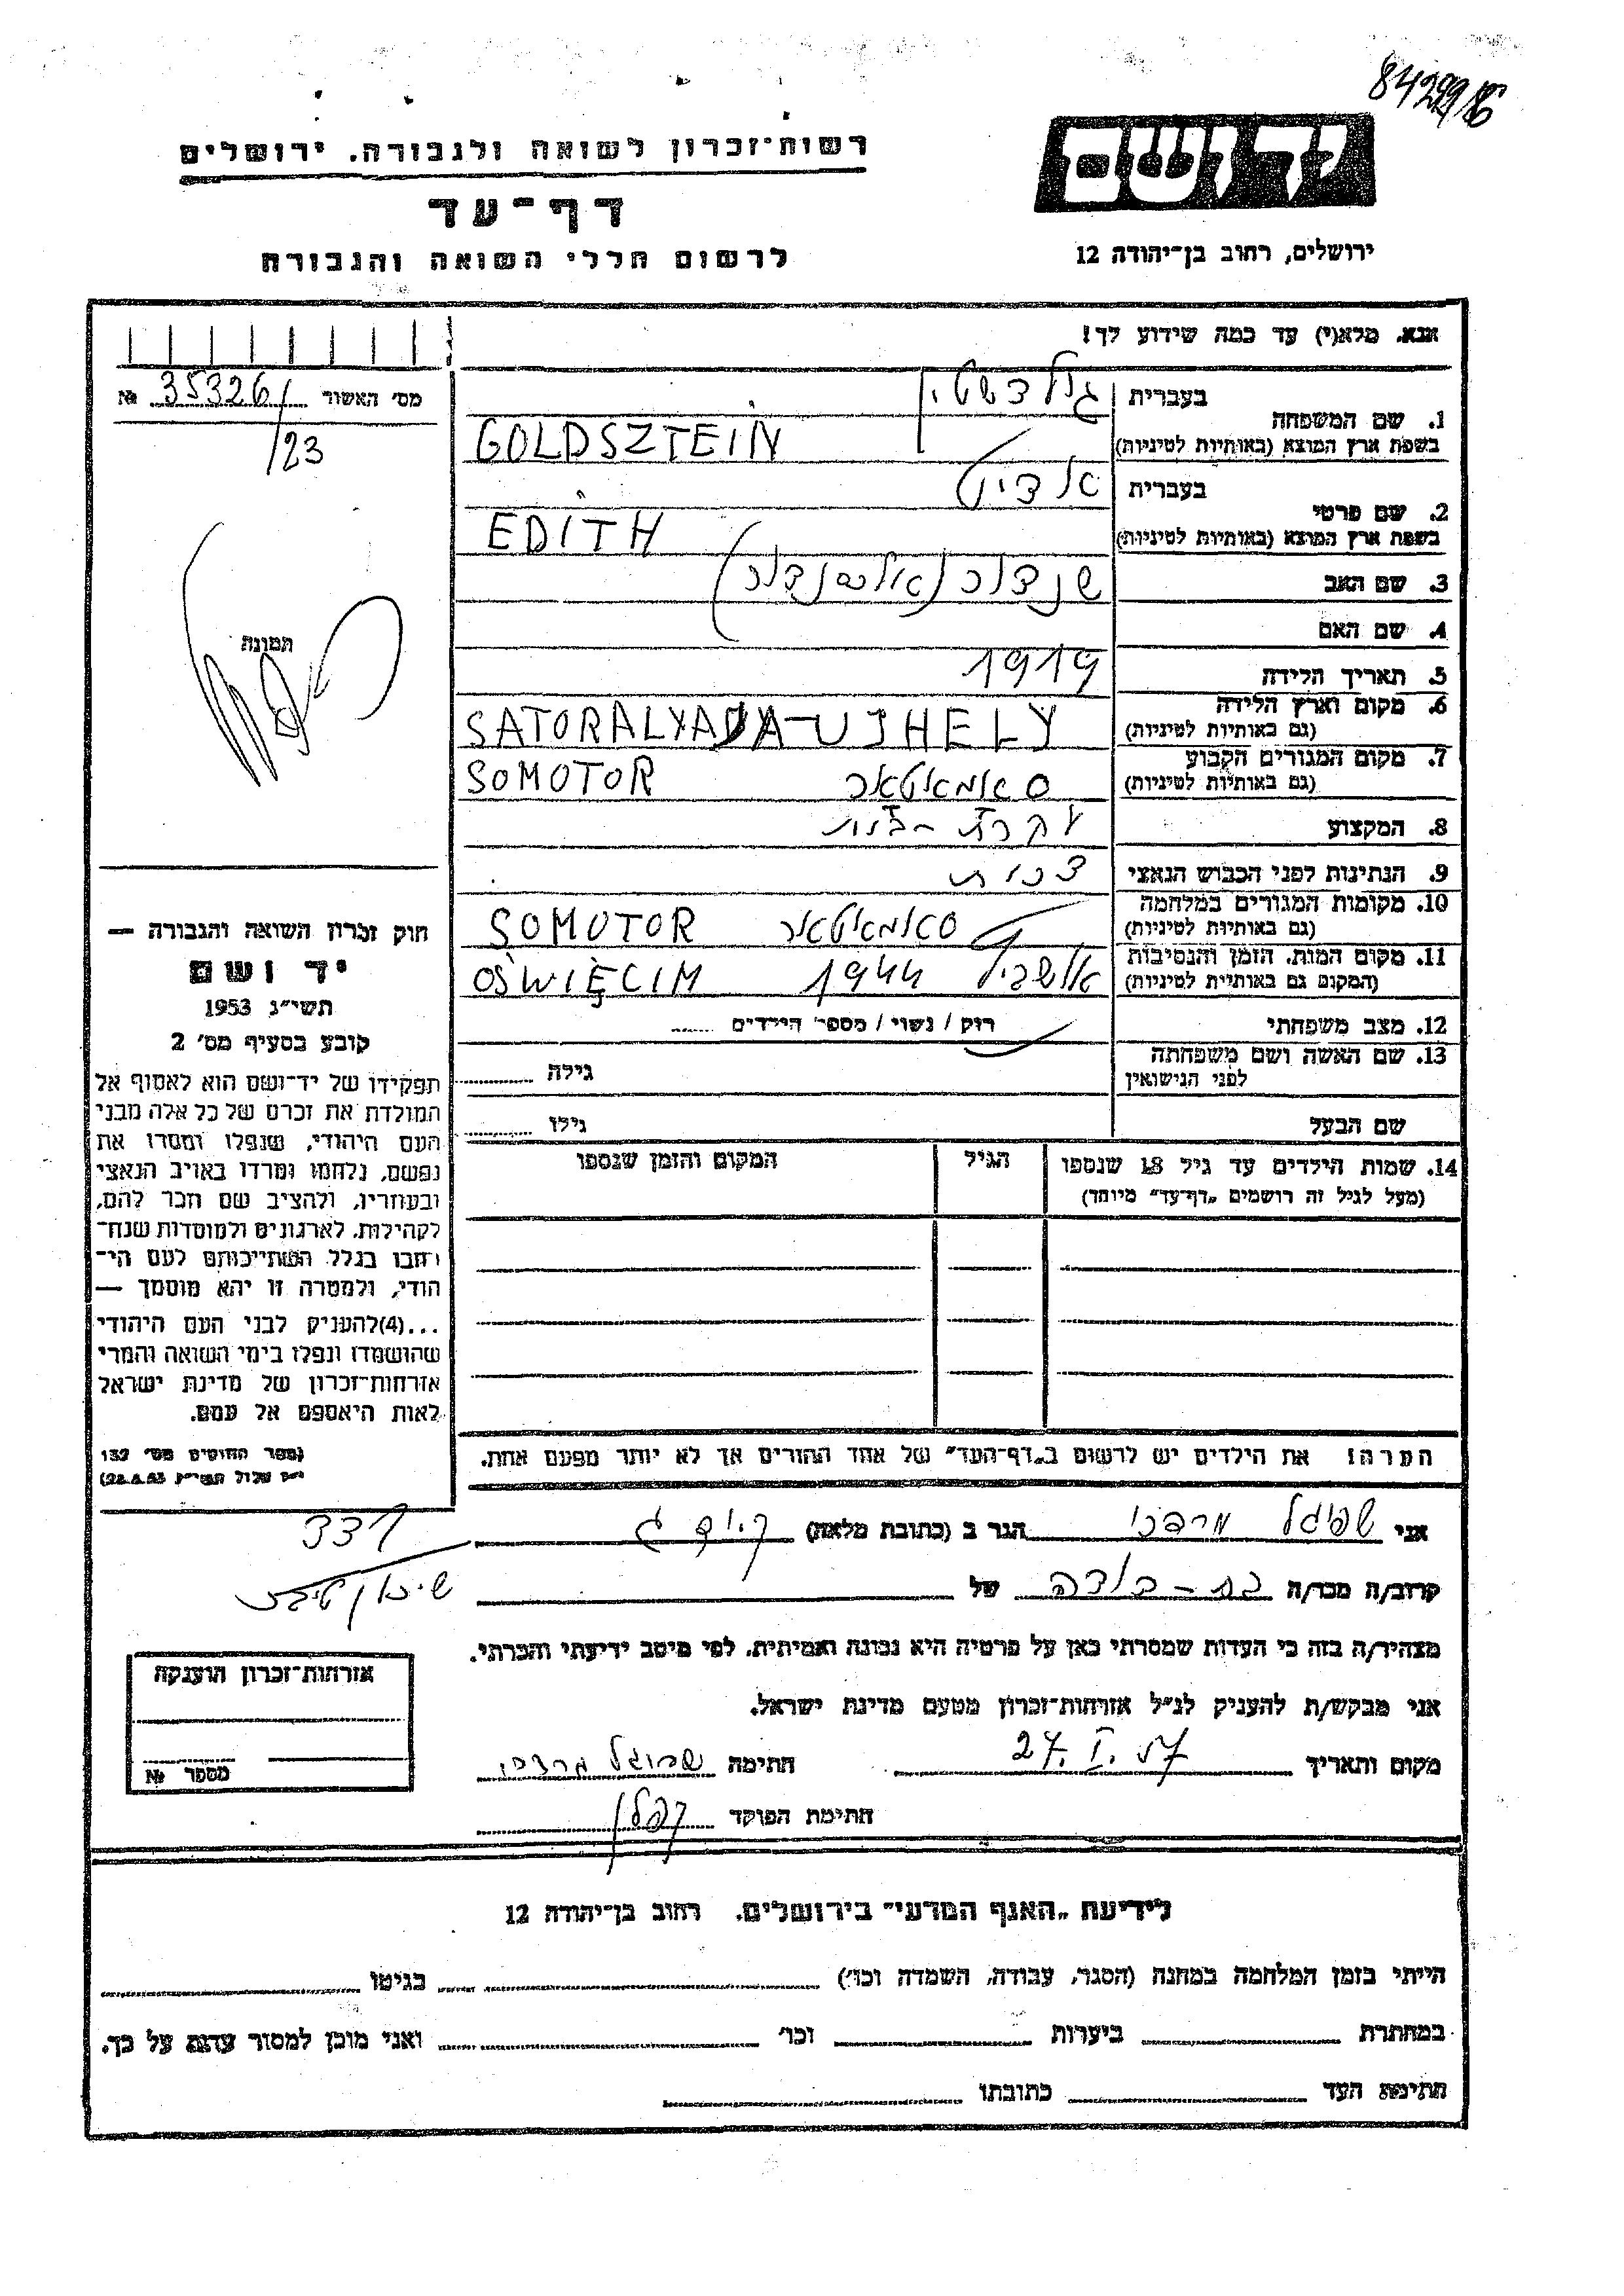 84299/16
רשות־זכרון לשואה ולגבורה. ירושלים
יד ושם
דף־עד
לרשום חללי השואה והגבורה
ירושלים, רחוב בן־יהודה 12
אנא. מלא(י) עד כמה שידוע לך!
מס׳ האשור 35326/ №
/23
תמונה
1. שם המשפחה
בעברית גולדשטין
בשפת ארץ המוצא (באותיות לטיניות) GOLDSZTEIN
2. שם פרטי
בעברית אדית
בשפת ארץ המוצא (באותיות לטיניות) EDITH
3. שם האב שנדור (אלכסנדור)
4. שם האם
5. תאריך הלידה 1919
6. מקום וארץ הלידה
(גם באותיות לטיניות) SATORALYADA-UJHELY
7. מקום המגורים הקבוע
(גם באותיות לטיניות) סאמאטאר SOMOTOR
8. המקצוע עקרת-בית
9. הנתינות לפני הכבוש הנאצי צכית
10. מקומות המגורים במלחמה
(גם באותיות לטיניות) סאמאטאר SOMOTOR
11. מקום המות. הזמן והנסיבות
(המקום גם באותיית לטיניות) אושביץ 1944 OŚWIĘCIM
12. מצב משפחתי רוק / נשוי / מספר הילדים
13. שם האשה ושם משפחתה
לפני הנישואין גילה
שם הבעל גילו
14. שמות הילדים עד גיל 18 שנספו הגיל המקום והזמן שנספו
(מעל לגיל זה רושמים „דף־עד״ מיוחד)
הערה! את הילדים יש לרשום ב„דף־העד״ של אחד ההורים אך לא יותר מפעם אחת.
חוק זכרון השואה והגבורה —
יד ושם
תשי״ג 1953
קובע בסעיף מס׳ 2
תפקידו של יד־ושם הוא לאסוף אל
המולדת את זכרם של כל אלה מבני
העם היהודי, שנפלו ומסרו את
נפשם, נלחמו ומרדו באויב הנאצי
ובעוזריו, ולהציב שם וזכר להם,
לקהילות, לארגונים ולמוסדות שנח־
רבו בגלל השתייכותם לעם הי־
הודי, ולמטרה זו יהא מוסמך —
...(4)להעניק לבני העם היהודי
שהושמדו ונפלו בימי השואה והמרי
אזרחות־זכרון של מדינת ישראל
לאות היאספם אל עמם.
(ספר החוקים מס׳ 132
אני שפיגל מרדכי הגר ב (כתובת מלאה)
קרוב/ה מכר/ה בת-דודה של
מצהיר/ה בזה כי העדות שמסרתי כאן על פרטיה היא נכונה ואמיתית. לפי מיטב ידיעתי והכרתי.
אני מבקש/ת להעניק לנ״ל אזרחות־זכרון מטעם מדינת ישראל.
מקום ותאריך 27.I.57 חתימה שפיגל מרדכי
חתימת הפוקד
אזרחות־זכרון הוענקה
מספר №
לידיעת „האגף המדעי״ בירושלים. רחוב בן־יהודה 12
הייתי בזמן המלחמה במחנה (הסגר, עבודה, השמדה וכו׳) בגיטו
במחתרת ביערות וכו׳ ואני מוכן למסור עדות על כך.
חתימת העד כתובתו